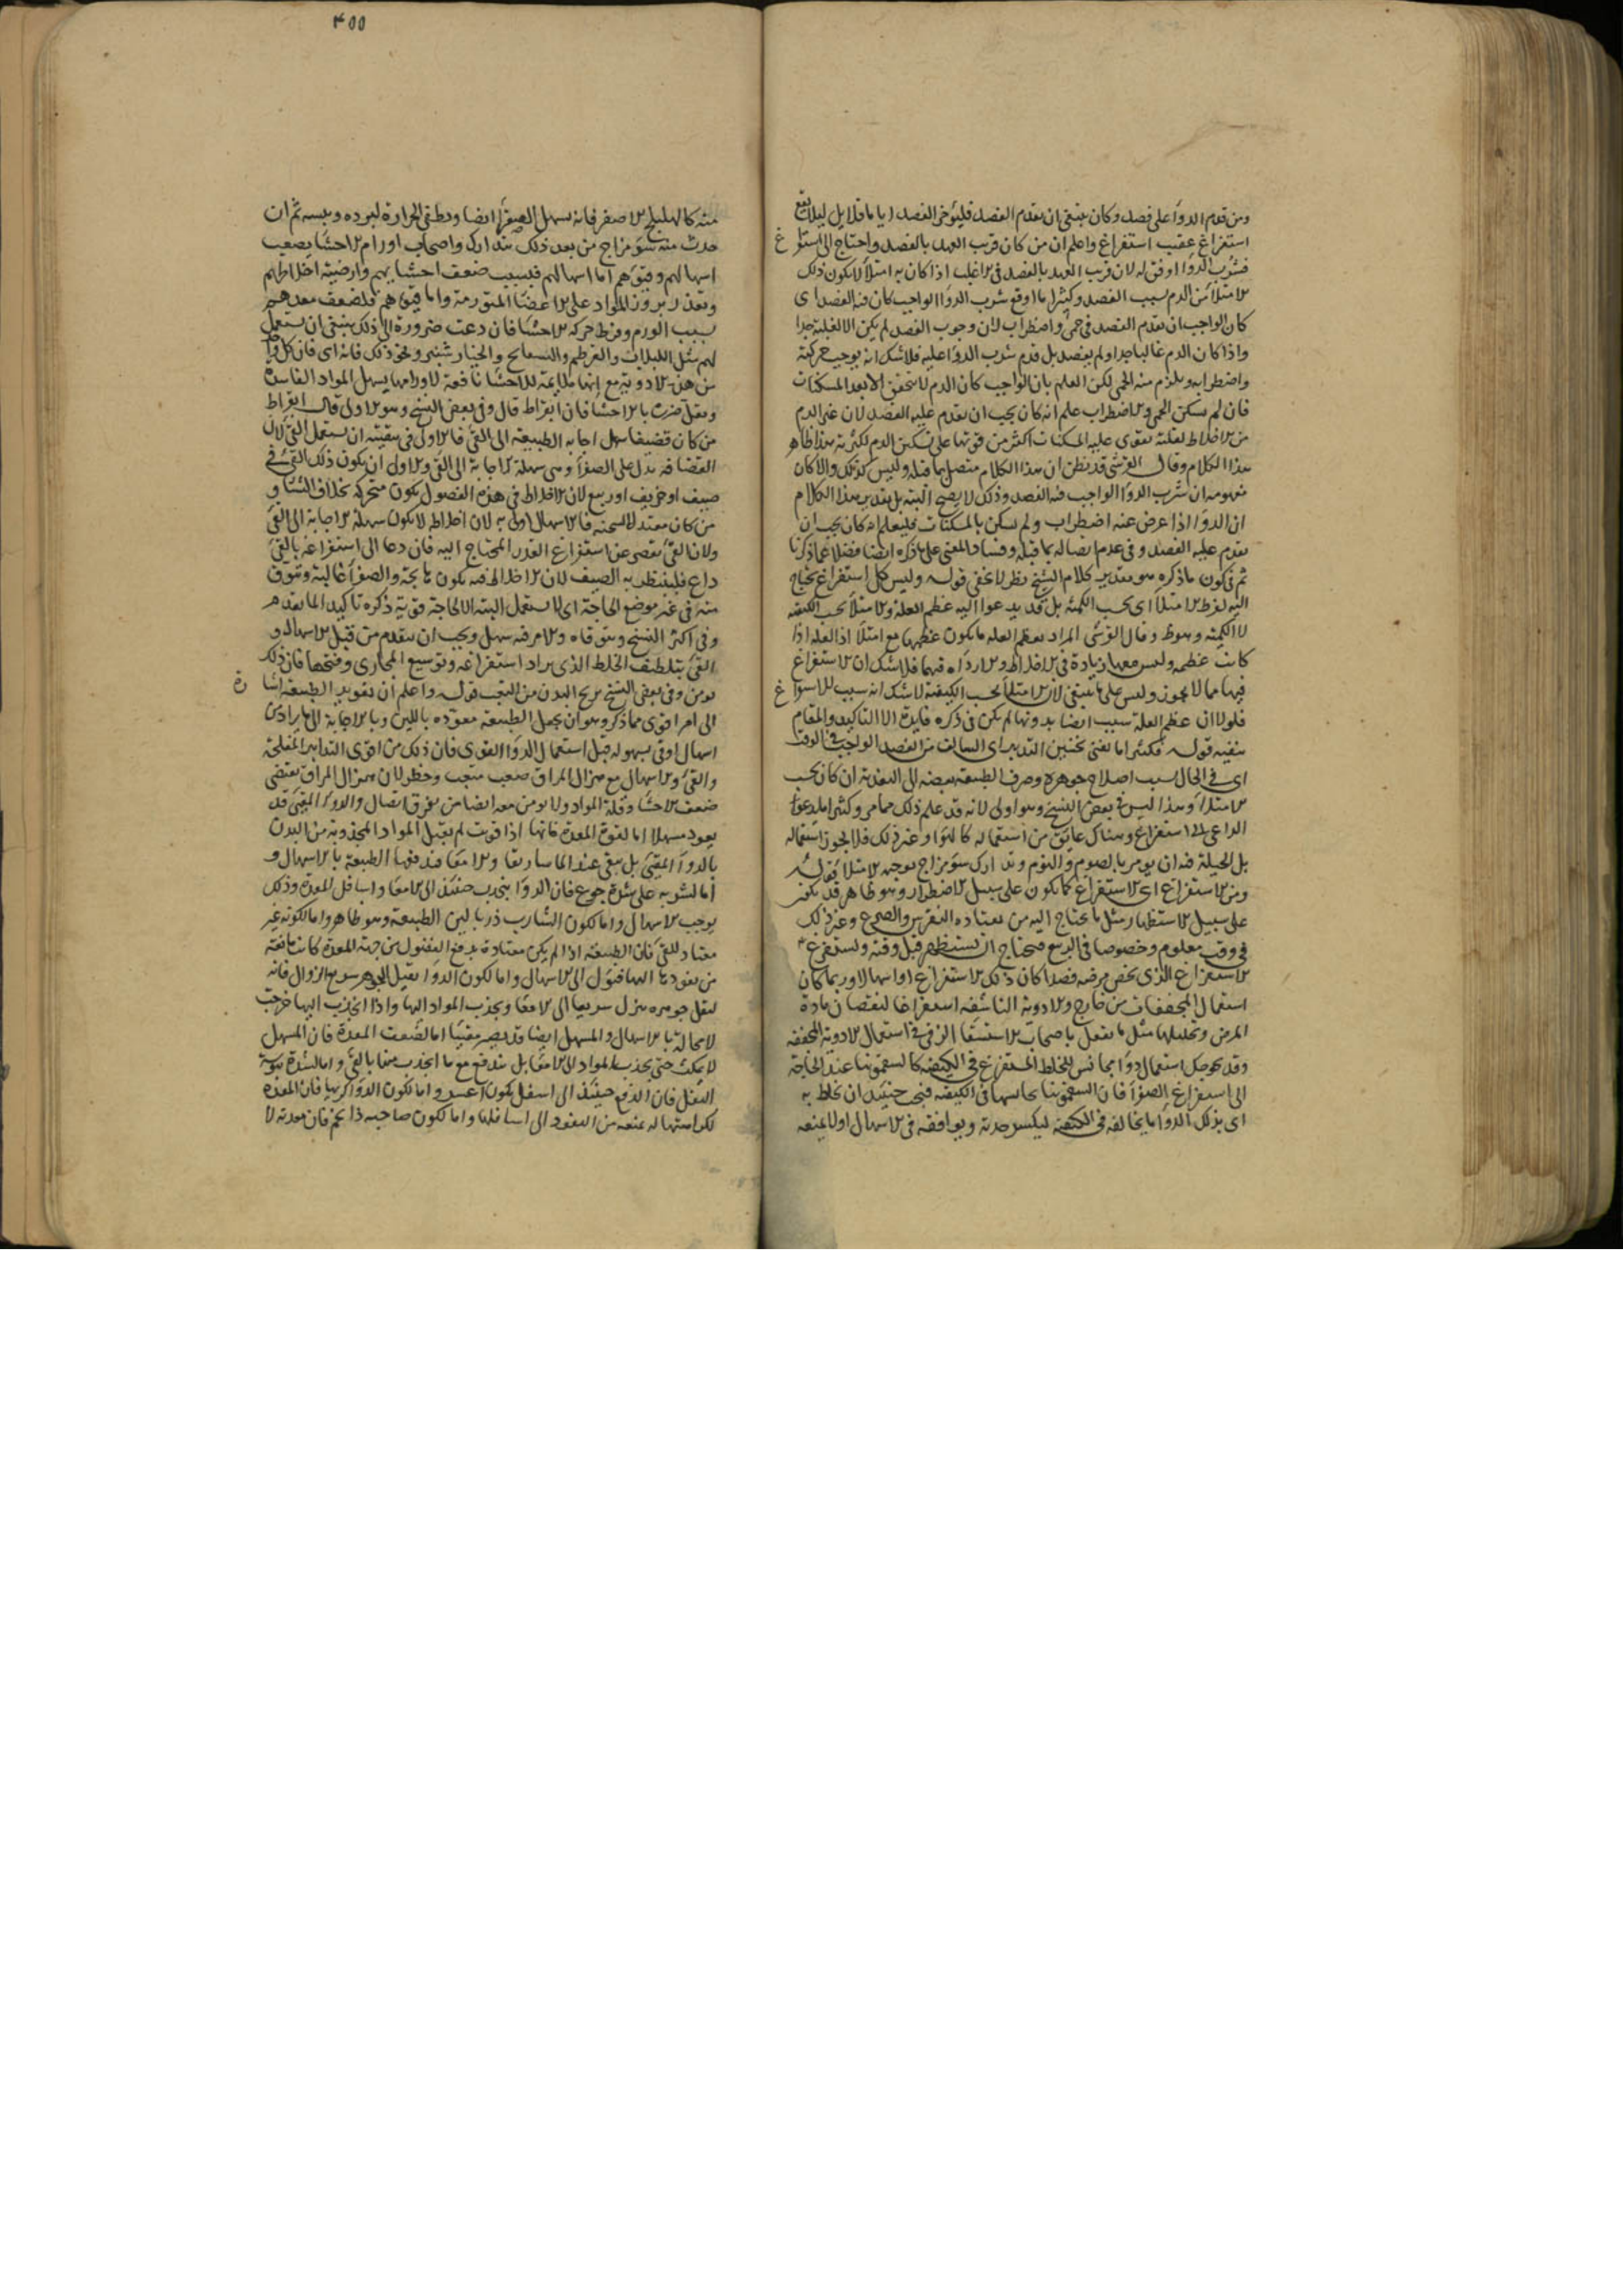 ومن قدم الدواء على فصد وكان ينبغى ان يقدم الفصد فليؤخر الفصد اياما قلايل ليلا يقع
استفراغ عقيب استفراغ واعلم ان من كان قريب العهد بالفصد واحتاج الى استفراغ
فشرب الدواء اوفق له لان قريب العهد بالفصد فى الاغلب اذا كان به امتلاء لا يكون ذلك
الامتلاء من الدم بسبب الفصد وكثيرا ما اوقع شرب الدواء الواجب كان فيه الفصد اى
كان الواجب ان يقدم الفصد فى حمى واضطراب لان وجوب الفصد لم يكن الا لغلبته جدا
واذا كان الدم غالبا جدا ولم يفصد بل قدم شرب الدواء عليه فلا شك انه يوجب حركته
واضطرابه ويلزم منه الحمى لكن العلم بان الواجب كان الدم لا يتحقق الا بعد المسكنات
فان لم يسكن الحمى والاضطراب علم انه كان يجب ان يقدم عليه الفصد لان غير الدم
من الاخلاط لقلته يقوى عليه المسكنات اكثر من قوتها على تسكين الدم لكثرته هذا ظاهر
هذا الكلام وقال القرشى قد يظن ان هذا الكلام متصل بما قبله وليس كذلك والا كان
مفهومه ان شرب الدواء الواجب فيه الفصد وذلك لا يصح البتة بل تقدير هذا الكلام
ان الدواء اذا عرض عنه اضطراب ولم يسكن بالمسكنات فليعلم انه كان يجب ان
يقدم عليه الفصد وفى عدم اتصاله بما قبله وفساد المعنى على ما ذكره ايضا فضلا عما ذكرنا
ثم فى كون ما ذكره هو تقدير كلام الشيخ نظر لا يخفى قوله وليس كل استفراغ يحتاج
اليه لفرط الامتلاء اى بحسب الكمية بل قد يدعوا اليه عظم العلة والامتلاء بحسب الكيفية
لا الكمية وهو ظ وقال القرشى المراد بعظم العلة ما يكون عظمها مع امتلاء اذ العلة اذا
كانت عظيمة وليس معها زيادة فى الاخلاط ولا رداءة فيها فلا شك ان الاستفراغ
فيها مما لا يجوز وليس على ما ينبغى لان الامتلاء بحسب الكيفية لا شك انه سبب للاستفراغ
فلولا ان عظم العلة سبب ايضا بدونها لم يكن فى ذكره فايدة الا التاكيد والمقام
ينفيه قوله فكثيرا ما يغنى تحسين التدبير اى السالف من الفصد الواجب فى الوقت
اى فى الحال بسبب اصلاح جوهره وصرف الطبيعة بعضه الى التغذية ان كان بحسب
الامتلاء وهذا ليس فى بعض النسخ وهو اولى لانه قد علم ذلك مما مر وكثيرا ما يدعوا
الداعى الى استفراغ وهناك عايق من استعماله كالهواء وغير ذلك فلا يجوز استعماله
بل الحيلة فيه ان يومر بالصوم والنوم وتدارك سوء مزاج يوجبه الامتلاء قوله
ومن الاستفراغ اى الاستفراغ كما يكون على سبيل الاضطرار وهو ظاهر قد يكون
على سبيل الاستظهار مثل ما يحتاج اليه من يعتاده النقرس والصرع وغير ذلك
فى وقت معلوم وخصوصا فى الربيع فيحتاج ان يستظهر قبل وقته ويستفرغ
الاستفراغ الذى يخص مرضه فصدا كان ذلك الاستفراغ او اسهالا وربما كان
استعمال المجففات من خارج والادوية الناشفة استفراغا لنقصان مادة
المرض وتحليلها مثل ما يفعل باصحاب الاستسقاء الزقى فى استعمال الادوية المجففة
وقد يحوجك استعمال دواء مجانس للخلط المستفرغ فى الكيفية كالسقمونيا عند الحاجة
الى استفراغ الصفراء فان السقمونيا يجانسها فى الكيفية فيجب حينئذ ان يخلط به
اى بذلك الدواء ما يخالفه فى الكيفية ليكسر حدته ويوافقه فى الاسهال او لا يمنعه
غ
غ
٤٥٥
منه كالهليلج الاصفر فانه يسهل الصفراء ايضا ويطفى الحرارة لبرده ويبسه ثم ان
حدث منه سوء مزاج من بعد ذلك يتدارك واصحاب اورام الاحشاء يصعب
اسهالهم وقيؤهم اما اسهالهم فبسبب ضعف احشايهم وارضية اخلاطهم
وتعذر بروز المواد على الاعضاء المتورمة واما قيؤهم فلضعف معدهم
بسبب الورم وفرط حركة الاحشاء فان دعت ضرورة الى ذلك ينبغى ان يستعمل
لهم مثل اللبلاب والقرطم والبسفايج والخيار شنبر ونحو ذلك فانه اى فان كل واحد
من هذه الادوية مع انها ملايمة للاحشاء نافعة لاورامها يسهل المواد الفاسدة
ويقل ضررها بالاحشاء فان ابقراط قال وفى بعض النسخ وهو الاولى قال ابقراط
من كان قضيفا سهل اجابة الطبيعة الى القئ فالاولى فى تنقيته ان يستعمل القئ لان
القضافة يدل على الصفراء وهى سهلة الاجابة الى القئ والاولى ان يكون ذلك القئ فى
صيف او خريف او ربيع لان الاخلاط فى هذه الفصول يكون متحركة بخلاف الشتاء و
من كان معتدل السحنة فالاسهال اولى به لان اخلاطه لا يكون سهلة الاجابة الى القئ
ولان القئ يقصر عن استفراغ القدر المحتاج اليه فان دعا الى استفراغه بالقئ
داع فلينتظر به الصيف لان الاخلاط فيه يكون هايجة والصفراء غالبة ويتوق
منه فى غير موضع الحاجة اى لا يستعمل البتة الا لحاجة قوية ذكره تاكيدا لما تقدم
وفى اكثر النسخ ويتوقاه والامر فيه سهل ويجب ان يتقدم من قبل الاسهال و
القئ بتلطيف الخلط الذى يراد استفراغه وتوسيع المجارى وفتحها فان ذلك
يومن وفى بعض النسخ يريح البدن من التعب قوله واعلم ان تعويد الطبيعة اشارة
الى امر اقوى مما ذكر وهو ان يجعل الطبيعة معوده باللين وبالاجابة الى ما يراد من
اسهال او قئ بسهولة قبل استعمال الدواء القوى فان ذلك من اقوى التدابير المفلحة
والقئ والاسهال مع هزال المراق صعب متعب وخطر لان هزال المراق يقتضى
ضعف الاحشاء وقلة المواد ولا يومن معه ايضا من تفرق اتصال والدواء المقيئ قد
يعود مسهلا اما لقوة المعدة فانها اذا قويت لم تقبل المواد المجذوبة من البدن
بالدواء المقيئ بل يبقى عند الماساريقا والامعاء فيدفعها الطبيعة بالاسهال و
اما لشربه على شدة جوع فان الدواء ينجذب حينئذ الى الامعاء واسافل المعدة وذلك
يوجب الاسهال واما لكون الشارب ذربا لين الطبيعة وهو ظاهر واما لكونه غير
معتاد للقئ فان الطبيعة اذا لم يكن معتادة بدفع الفضول من جهة المعدة كانت مانعة
من نفوذها اليها فيؤل الى الاسهال واما لكون الدواء ثقيل الجوهر سريع النزول فانه
لثقل جوهره ينزل سريعا الى الامعاء ويجذب المواد اليها واذا انجذب اليها خرجت
لا محالة بالاسهال والمسهل ايضا قد يصير مقيئا اما لضعف المعدة فان المسهل
لا يمكث حتى يجذب المواد الى الامعاء بل يندفع مع ما انجذب منها بالقئ واما لشدة يبوسة
الثفل فان الدفع حينئذ الى اسفل يكون اعسر واما لكون الدواء كريها فان المعدة
لكراهتها له يمنعه من النفوذ الى اسافلها واما لكون صاحبه ذا تخم فان معدته لا
رة